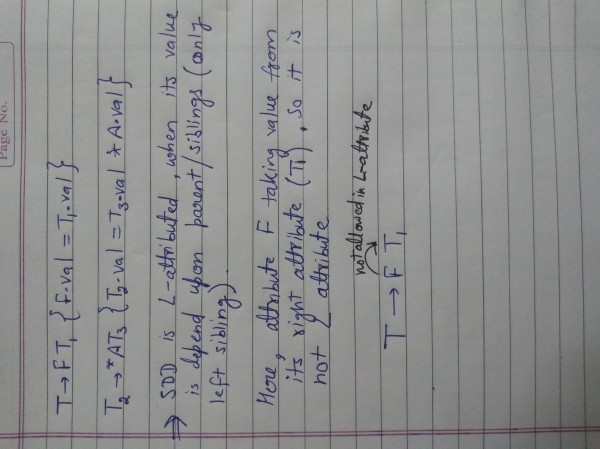 Page No.
T → FT₁ { F.val = T₁.val }
T₂ → *AT₃ { T₂.val = T₃.val * A.val }
⇒ SDD is L-attributed, when its value
is depend upon parent/siblings (only
left sibling).
Here, attribute F taking value from
its right attribute (T₁), so it is
not L attribute
not allowed in L-attribute
T → F T₁